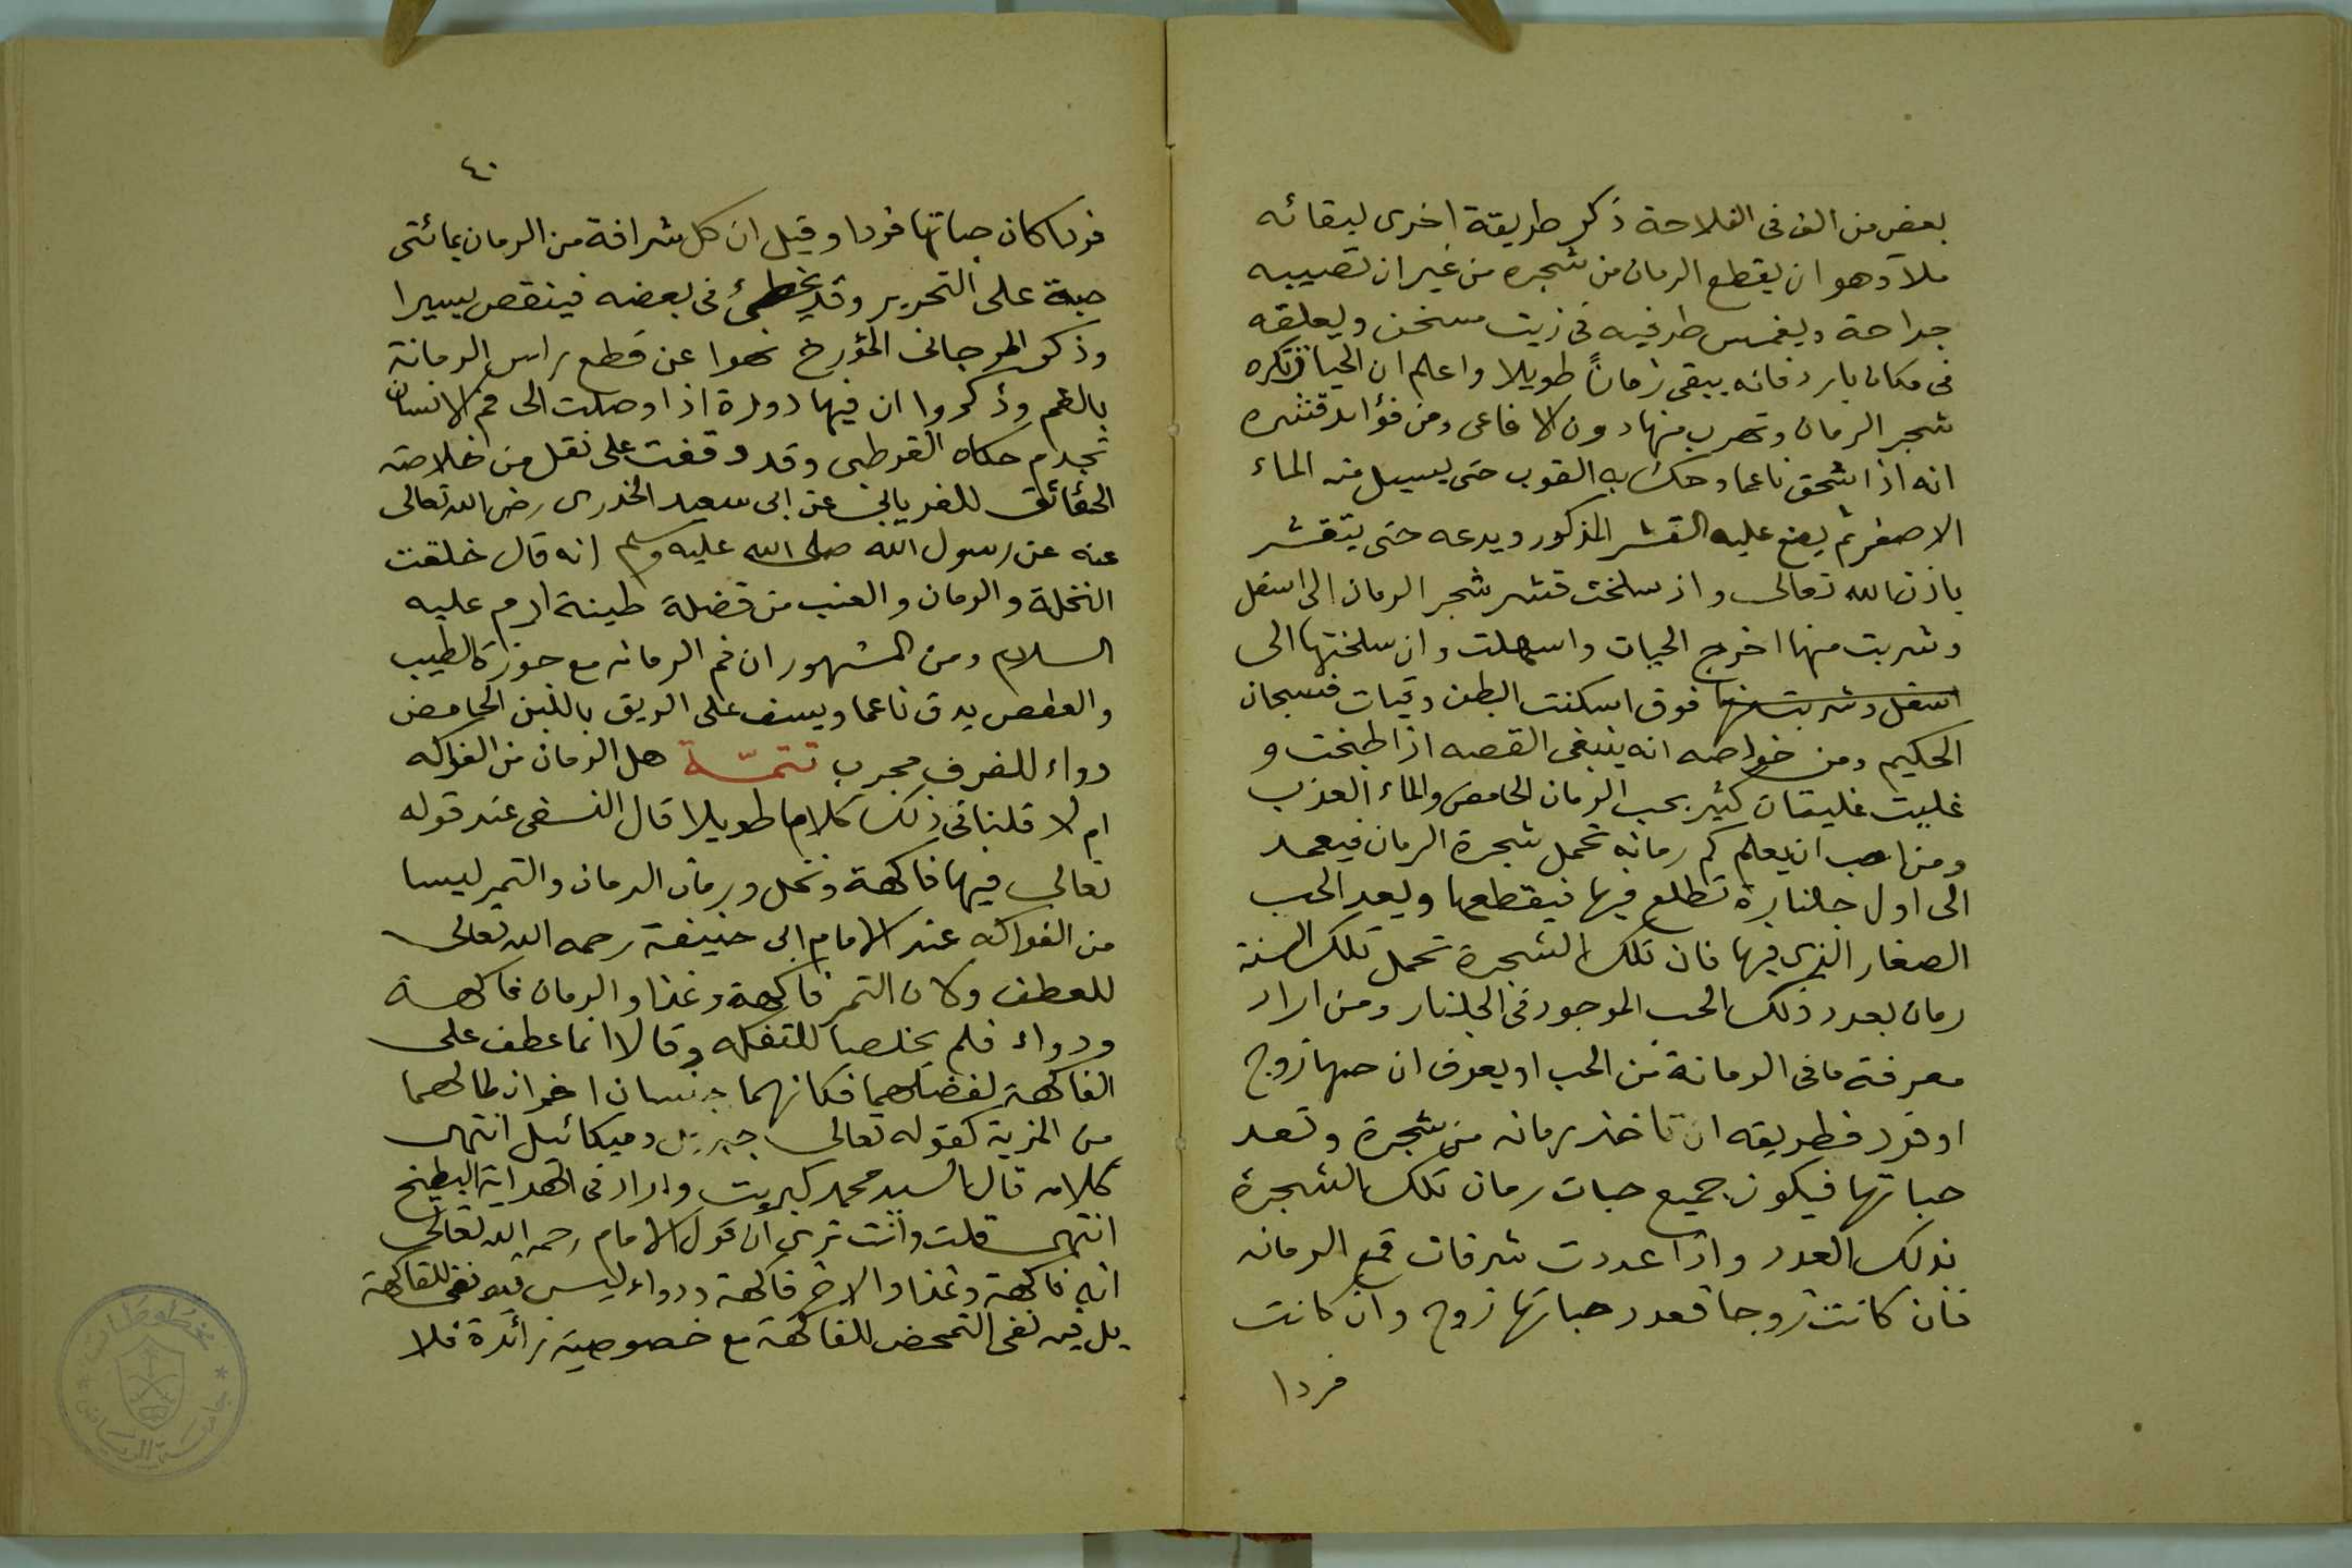 بعض من الف فى الفلاحة ذكر طريقة اخرى لبقائه
ملآ وهو ان يقطع الرمان من شجره من غير ان تصيبه
جراحة ويغمس طرفيه فى زيت مسخن ويعلقه
فى مكان بارد فانه يبقى زماناً طويلا واعلم ان الحيات تكره
شجر الرمان وتهرب منها دون الافاعى ومن فوائد قشره
انه اذا سحق ناعما وحك به القوب حتى يسيل منه الماء
الاصفر ثم يضع عليه القشر المذكور ويدعه حتى يتقشر
باذن الله تعالى واذ سلخت قشر شجر الرمان الى اسفل
وشربت منها اخرج الحيات واسهلت وان سلختها الى
اسفل وشربت منها فوق اسكنت البطن وقيات فسبحان
الحكيم ومن خواصه انه ينبغى القصه اذا طبخت و
غليت غليتان كثير بحب الرمان الحامض والماء العذب
ومن احب ان يعلم كم رمانه تحمل شجرة الرمان فيعمد
الى اول جلنارة تطلع فيها فيقطعها ويعد الحب
الصغار الذى فيها فان تلك الشجرة تحمل تلك السنة
رمان بعدد ذلك الحب الموجود فى الجلنار ومن اراد
معرفة ما فى الرمانة من الحب او يعرف ان حبها زوج
او فرد فطريقه ان تاخذ رمانه من شجرة وتعد
حباتها فيكون جميع حبات رمان تلك الشجرة
بذلك العدد واذا عددت شرفات قمع الرمانه
فان كانت زوجا فعدد حباتها زوج وان كانت
فردا
٤٠
فردا كان حباتها فردا وقيل ان كل شرافة من الرمان بمائتى
حبة على التحرير وقد يخطئ فى بعضه فينقص يسيرا
وذكر المرجانى المؤرخ نهوا عن قطع راس الرمانة
بالفم وذكروا ان فيها دودة اذا وصلت الى فم الانسان
تجذم حكاه القرطبى وقد وقفت على نقل من خلاصة
الحقائق للفريابى عن ابى سعيد الخدرى رضى الله تعالى
عنه عن رسول الله صلى الله عليه وسلم انه قال خلقت
النخلة والرمان والعنب من فضلة طينة ادم عليه
السلام ومن المشهور ان فم الرمانه مع جوزة الطيب
والعفص يدق ناعما ويسف على الريق باللبن الحامض
دواء للضرف مجرب تتمّة هل الرمان من الفواكه
ام لا قلنا فى ذلك كلاما طويلا قال النسفى عند قوله
تعالى فيها فاكهة ونخل ورمان الرمان والتمر ليسا
من الفواكه عند الامام ابى حنيفة رحمه الله تعالى
للعطف وكان التمر فاكهة وغذا والرمان فاكهة
ودواء فلم يخلصا للتفكه وقالا انما عطف على
الفاكهة لفضلهما فكانهما جنسان اخران لما لهما
من المزية كقوله تعالى جبريل وميكائيل انتهى
كلامه قال السيد محمد كبريت وزاد فى الهداية البطيخ
انتهى قلت وانت ترى ان قول الامام رحمه الله تعالى
انه فاكهة وغذا والاخر فاكهة ودواء ليس فيه نفى للفاكهة
بل فيه نفى التمحض للفاكهة مع خصوصية زائدة فلا
مخطوطات
جامعة الرياض